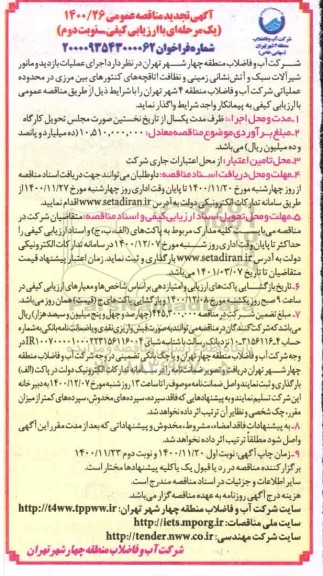 شرکت آب و فاضلاب
منطقه ۴ شهر تهران
(سهامی خاص)
آگهی تجدید مناقصه عمومی ۱۴۰۰/۲۶
(یک مرحله‌ای با ارزیابی کیفی-نوبت دوم)
شماره فراخوان ۲۰۰۰۰۹۳۵۴۳۰۰۰۰۶۲
شرکت آب و فاضلاب منطقه چهار شهر تهران در نظر دارد اجرای عملیات بازدید و مانور
شیرآلات سبک و آتش‌نشانی زمینی و نظافت اتاقچه‌های کنتورهای بین مرزی در محدوده
عملیاتی شرکت آب و فاضلاب منطقه ۴ شهر تهران را با شرایط ذیل از طریق مناقصه عمومی
با ارزیابی کیفی به پیمانکار واجد شرایط واگذار نماید.
۱-مدت و محل اجرا: ظرف مدت یکسال از تاریخ نخستین صورت مجلس تحویل کارگاه
۲-مبلغ برآوردی موضوع مناقصه معادل: ۱۰,۵۱۰,۰۰۰,۰۰۰ (ده میلیارد و پانصد
و ده میلیون ریال) می‌باشد.
۳-محل تامین اعتبار: از محل اعتبارات جاری شرکت
۴-مهلت و محل دریافت اسناد مناقصه: داوطلبان می‌توانند جهت دریافت اسناد مناقصه
از روز چهارشنبه مورخ ۱۴۰۰/۱۱/۲۰ تا پایان وقت اداری روز چهارشنبه مورخ ۱۴۰۰/۱۱/۲۷ از
طریق سامانه تدارکات الکترونیکی دولت به آدرس www.setadiran.ir اقدام نمایند.
۵-مهلت و محل تحویل اسناد ارزیابی کیفی و اسناد مناقصه: متقاضیان شرکت در
مناقصه می‌بایست کلیه مدارک مربوط به پاکت‌های (الف، ب، ج) و اسناد ارزیابی کیفی را
حداکثر تا پایان وقت اداری روز شنبه مورخ ۱۴۰۰/۱۲/۰۷ در سامانه تدارکات الکترونیکی
دولت به آدرس www.setadiran.ir بارگذاری و ثبت نماید. زمان اعتبار پیشنهاد قیمت
متقاضیان تا تاریخ ۱۴۰۱/۰۳/۰۷ می‌باشد.
۶-تاریخ بازگشایی پاکت‌های ارزیابی و امتیازدهی بر اساس شاخص‌ها و معیارهای ارزیابی کیفی در
ساعت ۹ صبح روز یکشنبه مورخ ۱۴۰۰/۱۲/۰۸ و بازگشایی پاکت‌های ج (قیمت) همان روز می‌باشد.
۷-مبلغ تضمین شرکت در مناقصه ۴۴۵,۳۰۰,۰۰۰ (چهارصد و چهل و پنج میلیون و سیصد هزار) ریال
می‌باشد که شرکت‌کنندگان در مناقصه می‌توانند به صورت فیش واریزی نقدی و یا ضمانت‌نامه بانکی به شماره
وجه شرکت آب و فاضلاب منطقه چهار تهران و یا چک بانکی تضمینی در وجه شرکت آب و فاضلاب منطقه
چهار شهر تهران دریافت و تصویر ضمانت‌نامه را در سامانه تدارکات الکترونیک دولت در پاکت (الف)
بارگذاری و ثبت نمایند و اصل ضمانت‌نامه موصوف را تا ساعت ۱۳ روز شنبه مورخ ۱۴۰۰/۱۲/۰۷ به دبیرخانه
این شرکت تسلیم نمایند و به پیشنهادهایی که فاقد سپرده، سپرده‌های مخدوش، سپرده‌های کمتر از میزان
مقرر، چک شخصی و نظایر آن ترتیب اثر داده نخواهد شد.
۸-به پیشنهادات فاقد امضاء، مشروط، مخدوش و پیشنهاداتی که بعد از مدت مقرر این آگهی
واصل شود مطلقاً ترتیب اثر داده نخواهد شد.
۹-زمان چاپ آگهی: نوبت اول ۱۴۰۰/۱۱/۲۰ و نوبت دوم ۱۴۰۰/۱۱/۲۳
برگزار کننده مناقصه در رد یا قبول یک یا کلیه پیشنهادها مختار است.
سایر اطلاعات و جزئیات در اسناد مناقصه مندرج است.
هزینه درج آگهی روزنامه به عهده مناقصه گزار می‌باشد.
سایت شرکت آب و فاضلاب منطقه چهار شهر تهران: http://t4ww.tppww.ir
سایت ملی مناقصات: http://iets.mporg.ir
سایت شرکت مهندسی: http://tender.nww.co.ir
شرکت آب و فاضلاب منطقه چهار شهر تهران